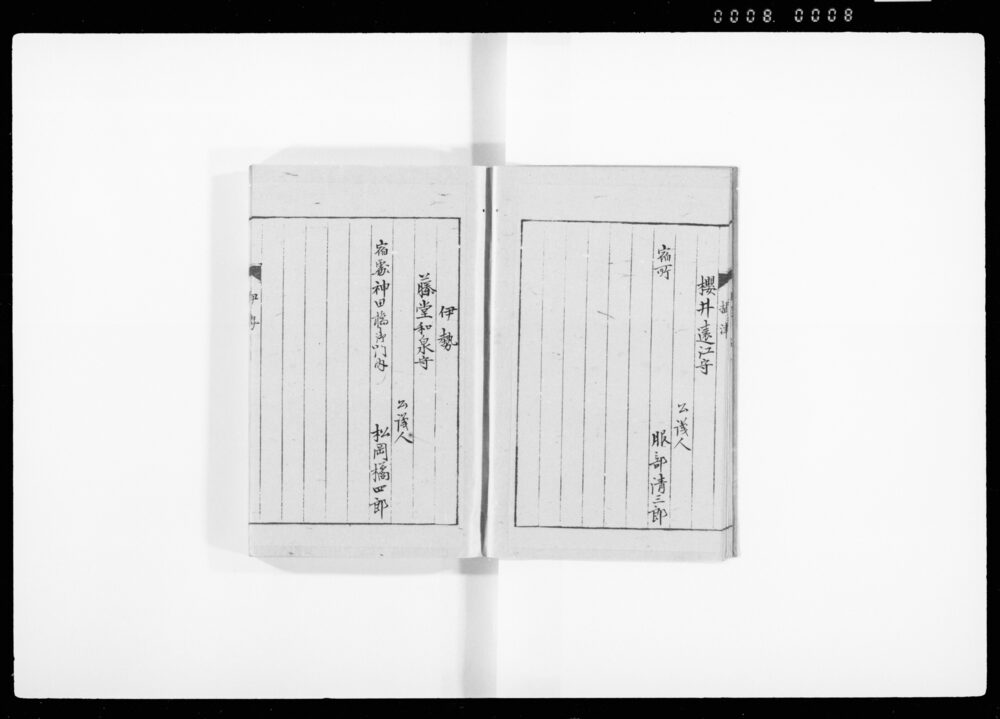 0008 0008
摂津
櫻井遠江守
公議人
宿所
服部清三郎
伊勢
藤堂和泉守
公議人
宿處神田橋御門内
松岡橘四郎
伊勢